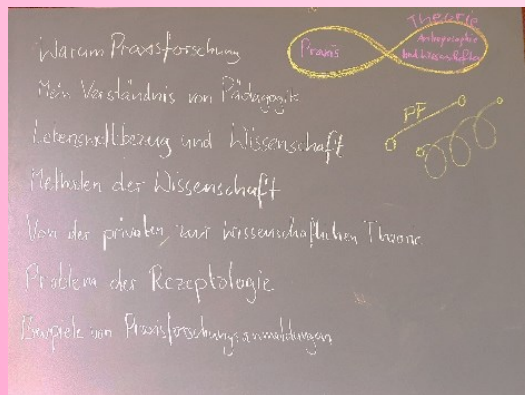 Warum Praxisforschung
Mein Verständnis von Pädagogik
Lebensweltbezug und Wissenschaft
Methoden der Wissenschaft
Von der privaten zur wissenschaftlichen Theorie
Problem der Rezeptologie
Beispiele von Praxisforschungsanmeldungen
Praxis
Theorie
Anthroposophie
PF